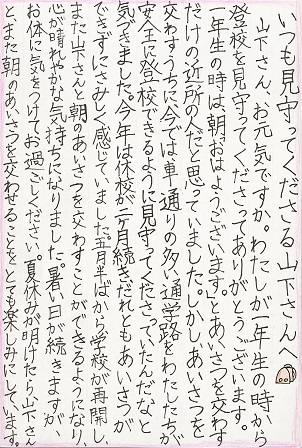 いつも見守ってくださる山下さんへ
山下さん、お元気ですか。わたしが一年生の時から
登校を見守ってくださってありがとうございます。
一年生の時は、朝「おはようございます。」とあいさつを交わす
だけの近所の人だと思っていました。しかし、あいさつを
交わすうちに、今では車通りの多い通学路をわたしたちが
安全に登校できるように見守ってくださっていたんだなと
気づきました。今年は休校が二ヶ月続きだれともあいさつが
できずにさみしく感じていました。五月半ばから学校が再開し、
また山下さんと朝のあいさつを交わすことができるようになり、
心が晴れやかな気持ちになりました。暑い日が続きますが、
お体に気をつけてお過ごしください。夏休みが明けたら山下さん
と、また朝のあいさつを交わせることをとても楽しみにしています。